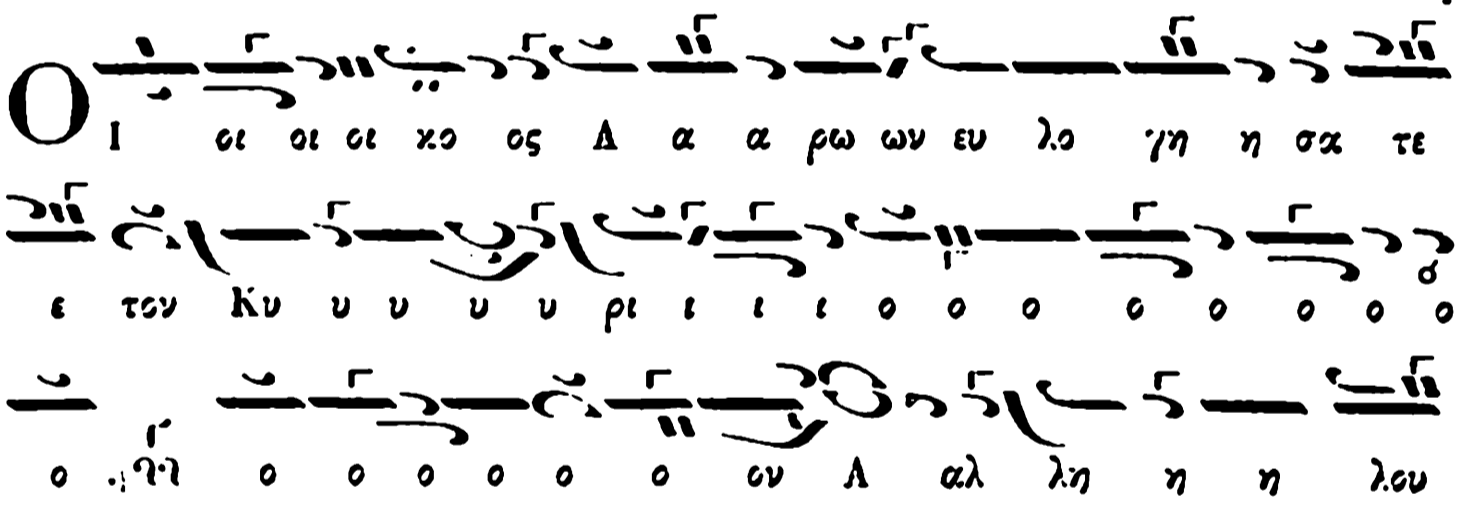 ΟΙ οι οι οι κο ος Α α α ρω ων ευ λο γη η σα τε
ε τον Κυ υ υ υ υ ρι ι ι ι ο ο ο ο ο ο ο ο
ο ο ο ο ο ο ο ον Α αλ λη η η λου